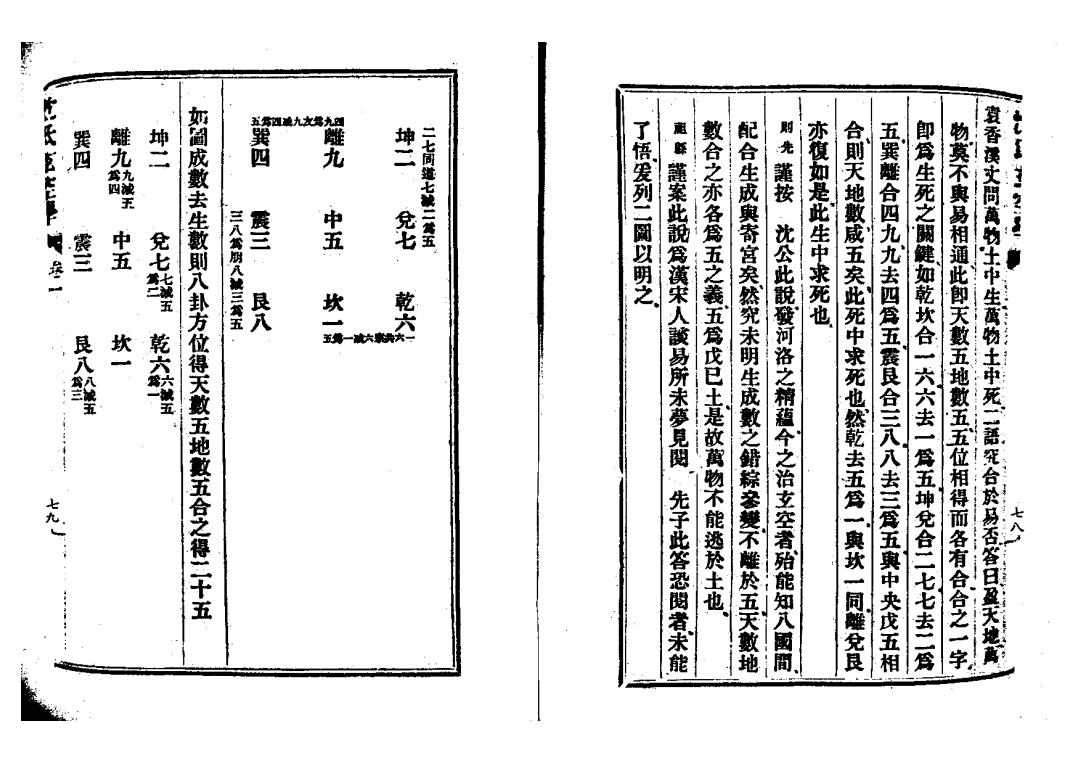 袁香溪丈問萬物土中生萬物土中死二語究合於易否答曰盈天地萬
物莫不與易相通此卽天數五地數五五位相得而各有合合之一字
卽爲生死之關鍵如乾坎合一六六去一爲五坤兌合二七七去二爲
五巽離合四九九去四爲五震艮合三八八去三爲五與中央戊五相
合則天地數咸五矣此死中求死也然乾去五爲一與坎一同離兌艮
亦復如是此生中求死也
則先 謹按 沈公此說發河洛之精蘊今之治玄空者殆能知八國間
配合生成與寄宮矣然究未明生成數之錯綜參變不離於五天數地
數合之亦各爲五之義五爲戊已土是故萬物不能逃於土也
祖緜 謹案此說爲漢宋人談易所未夢見閱 先子此答恐閱者未能
了悟爰列二圖以明之
七八
二七同道七減二爲五
坤二 兌七 乾六
一六共宗六減一爲五
離九 中五 坎一
四九爲友九減四爲五
巽四 震三 艮八
三八爲朋八減三爲五
如圖成數去生數則八卦方位得天數五地數五合之得二十五
坤二 兌七七減五爲二 乾六六減五爲一
離九九減五爲四 中五 坎一
巽四 震三 艮八八減五爲三
卷二
七九